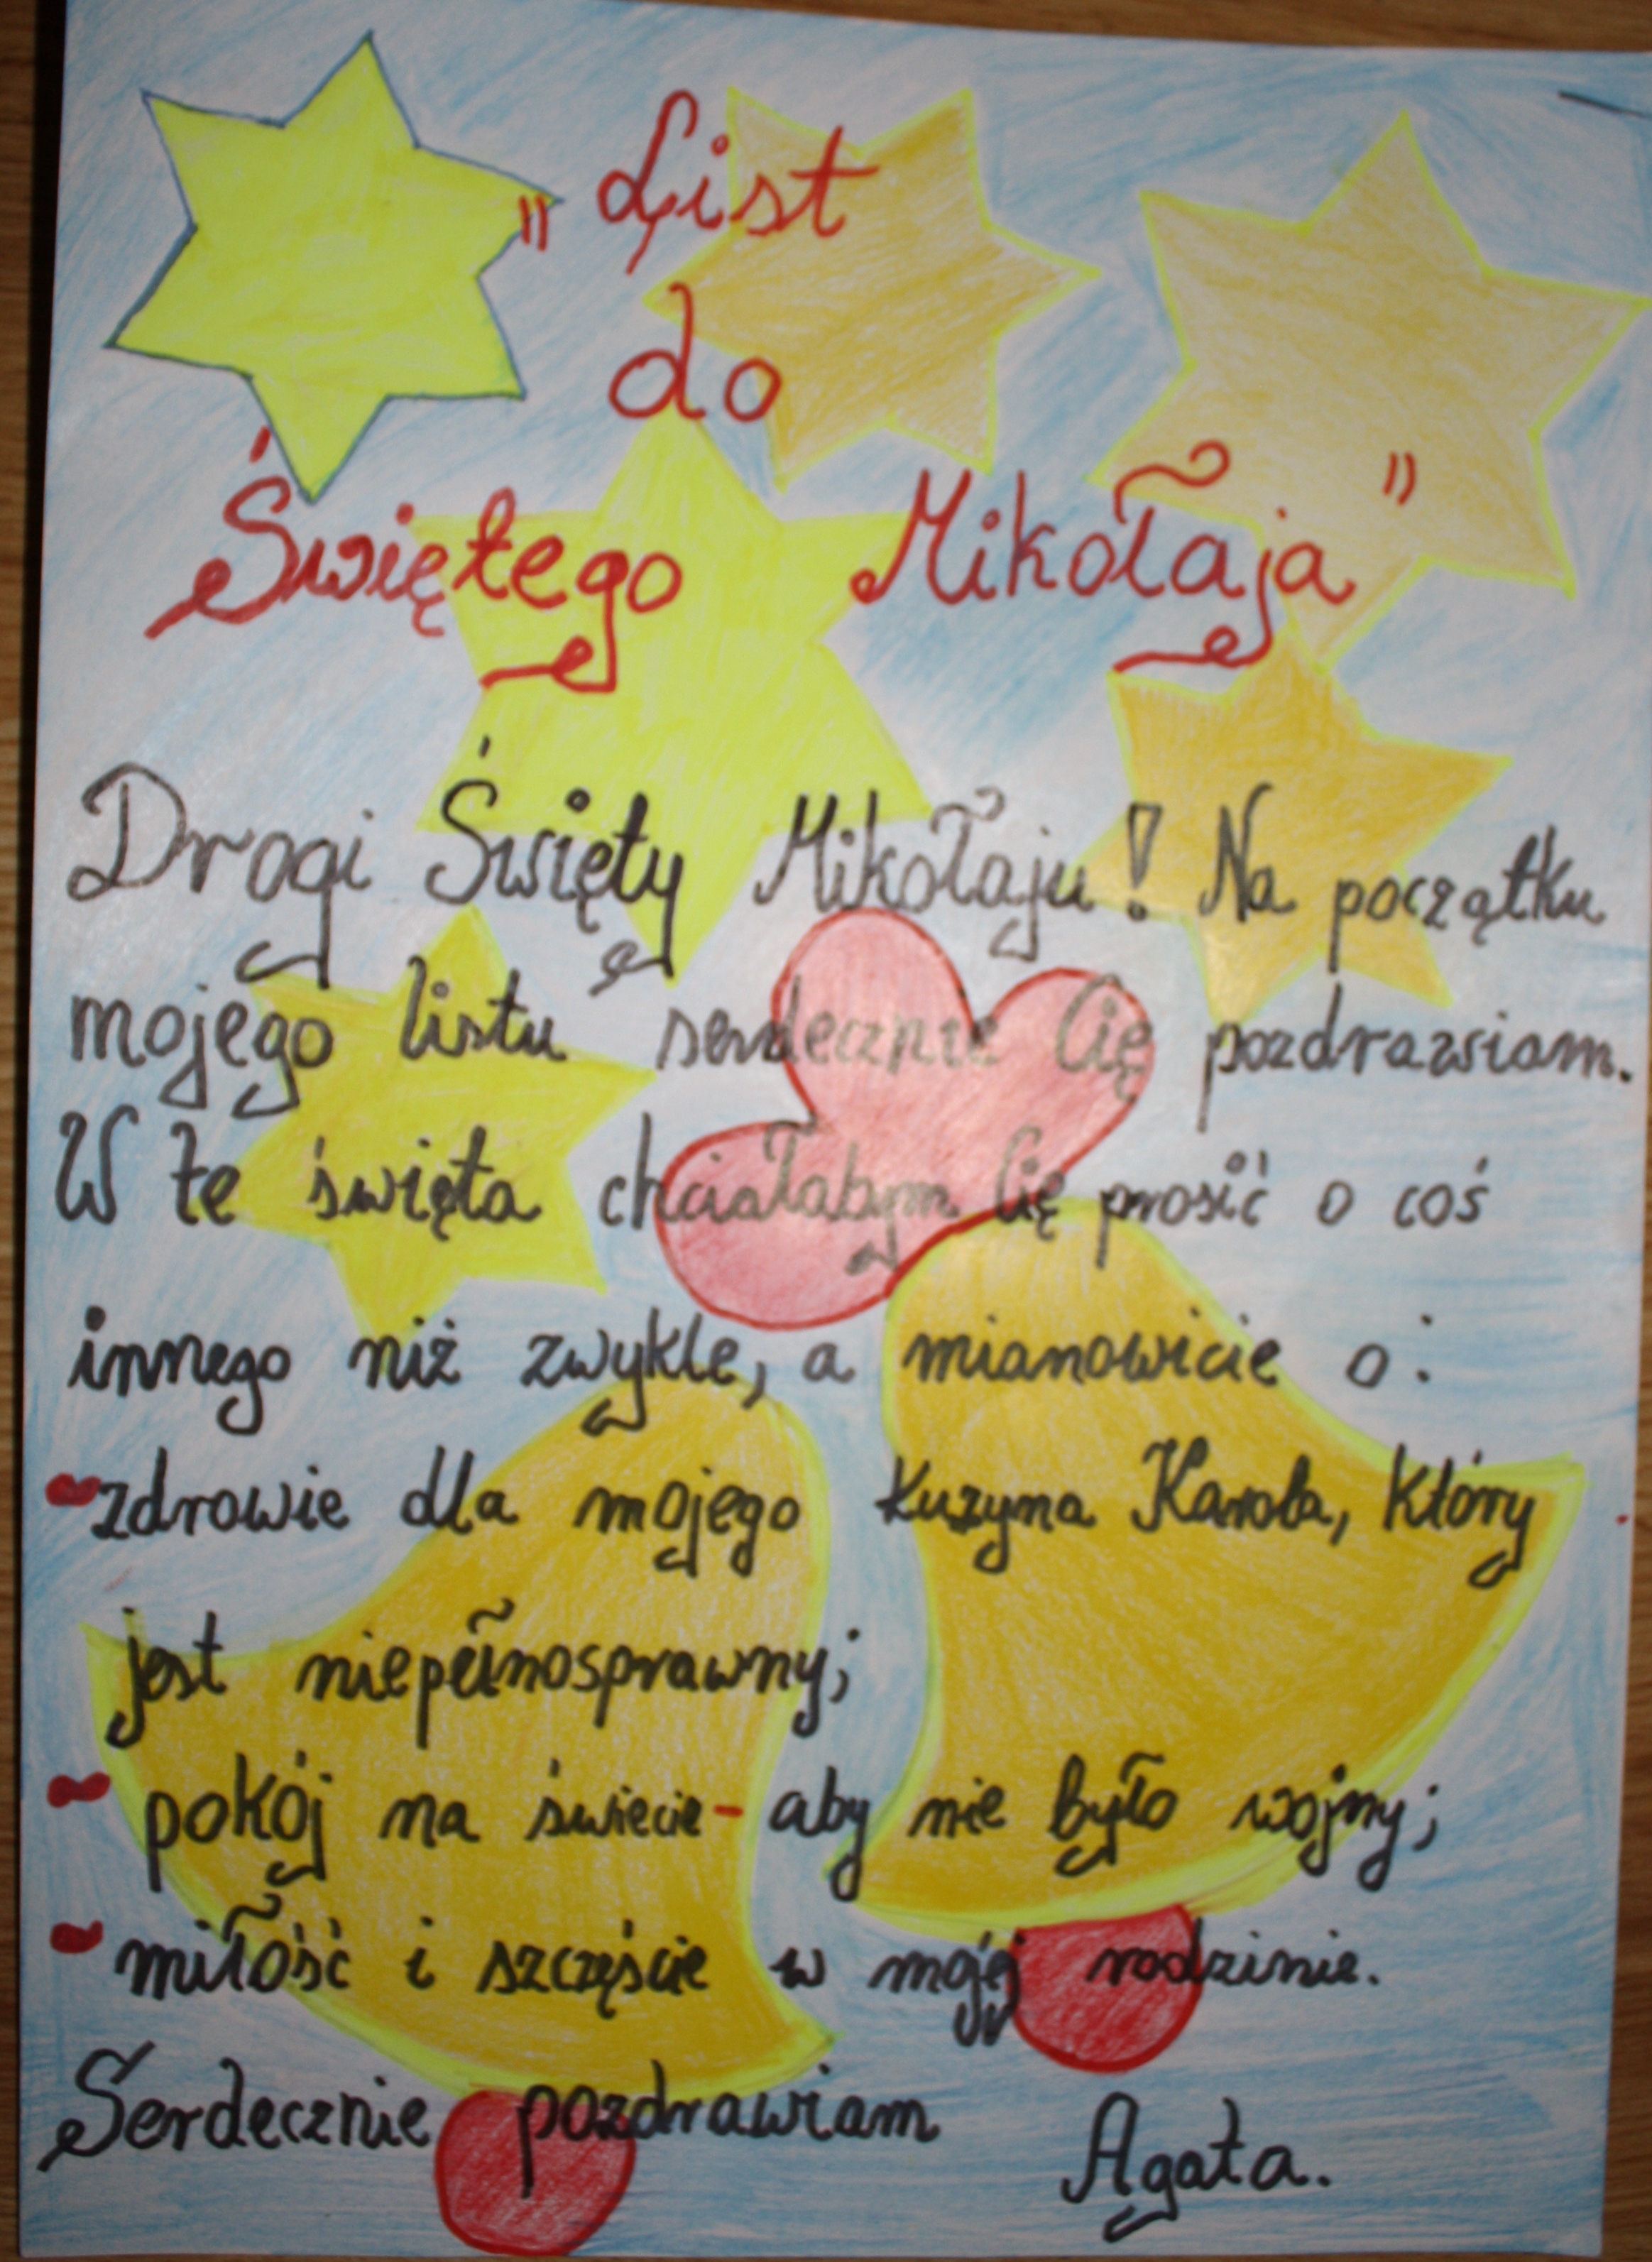 " List
do
Świętego Mikołaja "
Drogi Święty Mikołaju! Na początku
mojego listu serdecznie Cię pozdrawiam.
W te święta chciałabym Cię prosić o coś
innego niż zwykle, a mianowicie o:
- zdrowie dla mojego kuzyna Karola, który
jest niepełnosprawny;
- pokój na świecie - aby nie było wojny;
- miłość i szczęście w mojej rodzinie.
Serdecznie pozdrawiam
Agata.